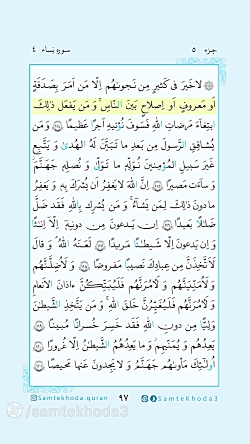 جزء ۵
سوره نساء ۴
لَا خَيْرَ فِى كَثِيرٍ مِّن نَّجْوَىٰهُمْ إِلَّا مَنْ أَمَرَ بِصَدَقَةٍ
أَوْ مَعْرُوفٍ أَوْ إِصْلَٰحٍۭ بَيْنَ ٱلنَّاسِۚ وَ مَن يَفْعَلْ ذَٰلِكَ
ٱبْتِغَآءَ مَرْضَاتِ ٱللَّهِ فَسَوْفَ نُؤْتِيهِ أَجْرًا عَظِيمًا ﴿۱۱۴﴾ وَ مَن
يُشَاقِقِ ٱلرَّسُولَ مِنۢ بَعْدِ مَا تَبَيَّنَ لَهُ ٱلْهُدَىٰ وَ يَتَّبِعْ
غَيْرَ سَبِيلِ ٱلْمُؤْمِنِينَ نُوَلِّهِۦ مَا تَوَلَّىٰ وَ نُصْلِهِۦ جَهَنَّمَۖ
وَ سَآءَتْ مَصِيرًا ﴿۱۱۵﴾ إِنَّ ٱللَّهَ لَا يَغْفِرُ أَن يُشْرَكَ بِهِۦ وَ يَغْفِرُ
مَا دُونَ ذَٰلِكَ لِمَن يَشَآءُۚ وَ مَن يُشْرِكْ بِٱللَّهِ فَقَدْ ضَلَّ
ضَلَٰلًۢا بَعِيدًا ﴿۱۱۶﴾ إِن يَدْعُونَ مِن دُونِهِۦٓ إِلَّآ إِنَٰثًا
وَ إِن يَدْعُونَ إِلَّا شَيْطَٰنًا مَّرِيدًا ﴿۱۱۷﴾ لَّعَنَهُ ٱللَّهُۘ وَ قَالَ
لَأَتَّخِذَنَّ مِنْ عِبَادِكَ نَصِيبًا مَّفْرُوضًا ﴿۱۱۸﴾ وَ لَأُضِلَّنَّهُمْ
وَ لَأُمَنِّيَنَّهُمْ وَ لَءَامُرَنَّهُمْ فَلَيُبَتِّكُنَّ ءَاذَانَ ٱلْأَنْعَٰمِ
وَ لَءَامُرَنَّهُمْ فَلَيُغَيِّرُنَّ خَلْقَ ٱللَّهِۚ وَ مَن يَتَّخِذِ ٱلشَّيْطَٰنَ
وَلِيًّا مِّن دُونِ ٱللَّهِ فَقَدْ خَسِرَ خُسْرَانًا مُّبِينًا ﴿۱۱۹﴾
يَعِدُهُمْ وَ يُمَنِّيهِمْۖ وَ مَا يَعِدُهُمُ ٱلشَّيْطَٰنُ إِلَّا غُرُورًا ﴿۱۲۰﴾
أُو۟لَٰٓئِكَ مَأْوَىٰهُمْ جَهَنَّمُ وَ لَا يَجِدُونَ عَنْهَا مَحِيصًا ﴿۱۲۱﴾
Samtekhoda.quran
۹۷
SamteKhoda3
/samtekhoda3